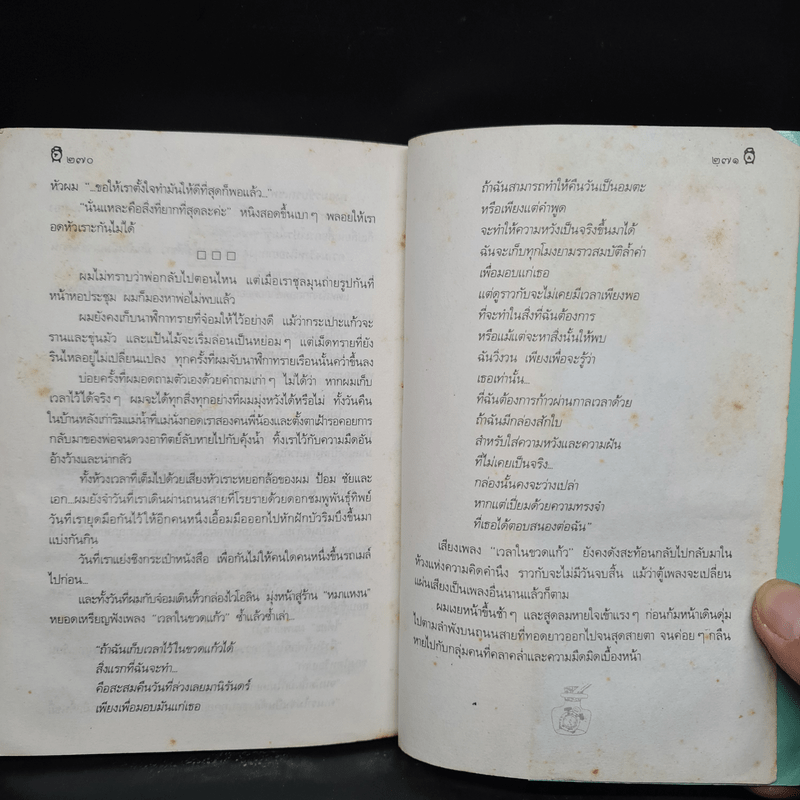 ๒๗๐
หัวผม "...ขอให้เราตั้งใจทำมันให้ดีที่สุดก็พอแล้ว..."
"นั่นแหละคือสิ่งที่ยากที่สุดละค่ะ" หนิงสอดขึ้นเบาๆ พลอยให้เรา
อดหัวเราะกันไม่ได้
□ □ □
ผมไม่ทราบว่าพ่อกลับไปตอนไหน แต่เมื่อเราชุลมุนถ่ายรูปกันที่
หน้าหอประชุม ผมก็มองหาพ่อไม่พบแล้ว
ผมยังคงเก็บนาฬิกาทรายที่จ๋อมให้ไว้อย่างดี แม้ว่ากระเปาะแก้วจะ
รานและขุ่นมัว และแป้นไม้จะเริ่มล่อนเป็นหย่อมๆ แต่เม็ดทรายที่ยัง
รินไหลอยู่ไม่เปลี่ยนแปลง ทุกครั้งที่ผมจับนาฬิกาทรายเรือนนั้นคว่ำขึ้นลง
บ่อยครั้งที่ผมอดถามตัวเองด้วยคำถามเก่าๆ ไม่ได้ว่า หากผมเก็บ
เวลาไว้ได้จริงๆ ผมจะได้ทุกสิ่งทุกอย่างที่ผมมุ่งหวังได้หรือไม่ ทั้งวันคืน
ในบ้านหลังเก่าริมแม่น้ำที่แม่นั่งกอดเราสองคนพี่น้องและตั้งตาเฝ้ารอคอยการ
กลับมาของพ่อจนดวงอาทิตย์ลับหายไปกับคุ้งน้ำ ทิ้งเราไว้กับความมืดอัน
อ้างว้างและน่ากลัว
ทั้งห้วงเวลาที่เต็มไปด้วยเสียงหัวเราะหยอกล้อของผม ป้อม ชัยและ
เอก...ผมยังจำวันที่เราเดินผ่านถนนสายที่โรยรายด้วยดอกชมพูพันธุ์ทิพย์
วันที่เรายุดมือกันไว้ให้อีกคนหนึ่งเอื้อมมือออกไปหักฝักบัวริมบึงขึ้นมา
แบ่งกันกิน
วันที่เราแย่งชิงกระเป๋าหนังสือ เพื่อกันไม่ให้คนใดคนหนึ่งขึ้นรถเมล์
ไปก่อน...
และทั้งวันที่ผมกับจ๋อมเดินหิ้วกล่องไวโอลิน มุ่งหน้าสู่ร้าน "หมาแหงน"
หยอดเหรียญฟังเพลง "เวลาในขวดแก้ว" ซ้ำแล้วซ้ำเล่า...
"ถ้าฉันเก็บเวลาไว้ในขวดแก้วได้
สิ่งแรกที่ฉันจะทำ...
คือสะสมคืนวันที่ล่วงเลยมานิรันดร์
เพียงเพื่อมอบมันแก่เธอ
๒๗๑
ถ้าฉันสามารถทำให้คืนวันเป็นอมตะ
หรือเพียงแต่คำพูด
จะทำให้ความหวังเป็นจริงขึ้นมาได้
ฉันจะเก็บทุกโมงยามราวสมบัติล้ำค่า
เพื่อมอบแก่เธอ
แต่ดูราวกับจะไม่เคยมีเวลาเพียงพอ
ที่จะทำในสิ่งที่ฉันต้องการ
หรือแม้แต่จะหาสิ่งนั้นให้พบ
ฉันวิ่งวน เพียงเพื่อจะรู้ว่า
เธอเท่านั้น...
ที่ฉันต้องการก้าวผ่านกาลเวลาด้วย
ถ้าฉันมีกล่องสักใบ
สำหรับใส่ความหวังและความฝัน
ที่ไม่เคยเป็นจริง...
กล่องนั้นคงจะว่างเปล่า
หากแต่เปี่ยมด้วยความทรงจำ
ที่เธอได้ตอบสนองต่อฉัน"
เสียงเพลง "เวลาในขวดแก้ว" ยังคงดังสะท้อนกลับไปกลับมาใน
ห้วงแห่งความคิดคำนึง ราวกับจะไม่มีวันจบสิ้น แม้ว่าตู้เพลงจะเปลี่ยน
แผ่นเสียงเป็นเพลงอื่นนานแล้วก็ตาม
ผมเงยหน้าขึ้นช้าๆ และสูดลมหายใจเข้าแรงๆ ก่อนก้มหน้าเดินดุ่ม
ไปตามลำพังบนถนนสายที่ทอดยาวออกไปจนสุดสายตา จนค่อยๆ กลืน
หายไปกับกลุ่มคนที่คลาคล่ำและความมืดมิดเบื้องหน้า